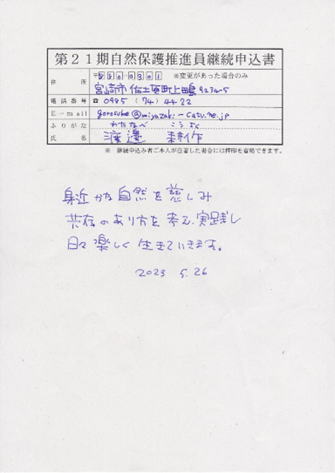 第21期自然保護推進員継続申込書
住所 〒8800301 ※変更があった場合のみ
宮崎市佐土原町上田島9270-5
電話番号 ☎ 0985 (74) 4422
E-mail gorosuke@miyazaki-catv.ne.jp
ふりがな わたなべ こうさく
氏名 渡邉 耕作
※ 継続申込み者ご本人が自署した場合には押印を省略できます。
身近かな自然を慈しみ
共存のあり方を考え、実践し
日々楽しく生きていきます。
2023 5.26